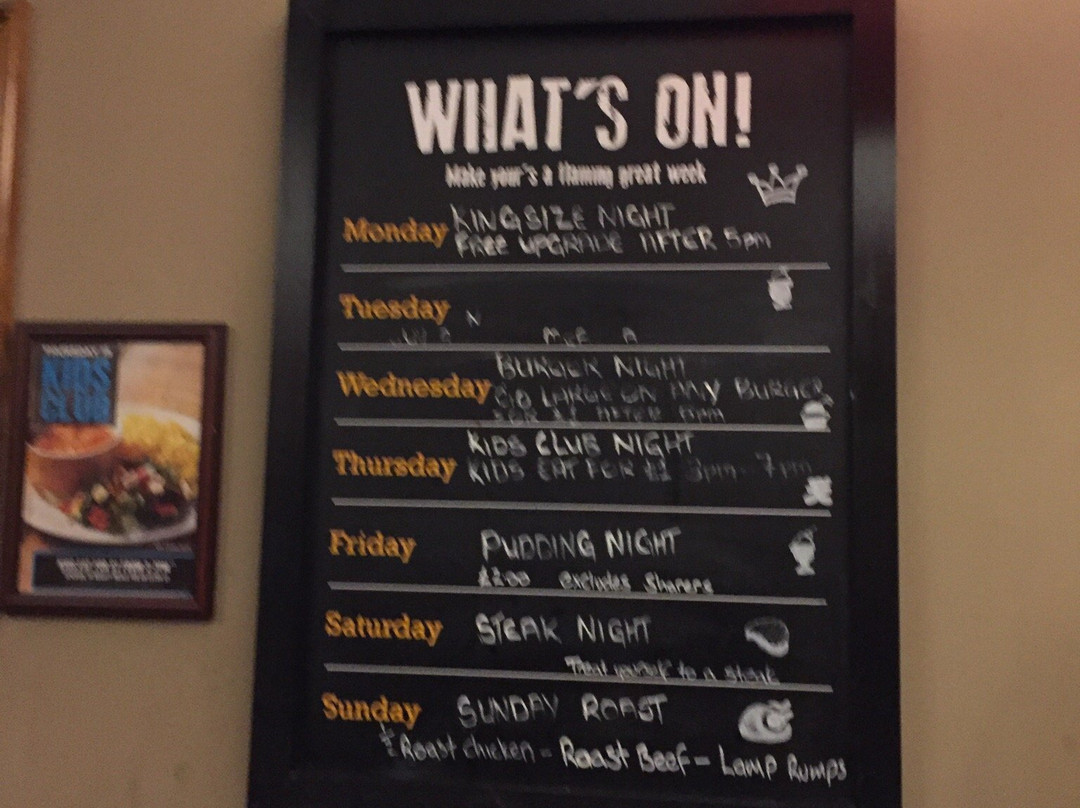 WHAT'S ON!
Make your's a flaming great week
Monday KINGSIZE NIGHT
FREE UPGRADE AFTER 5pm
Tuesday
Wednesday BURGER NIGHT
GO LARGE ON ANY BURGER
FOR £1 AFTER 5pm
Thursday KIDS CLUB NIGHT
KIDS EAT FOR £1 3pm - 7pm
Friday PUDDING NIGHT
£2.00 excludes Sharers
Saturday STEAK NIGHT
Treat yourself to a steak
Sunday SUNDAY ROAST
½ Roast chicken - Roast Beef - Lamp Rumps
KIDS
CLUB